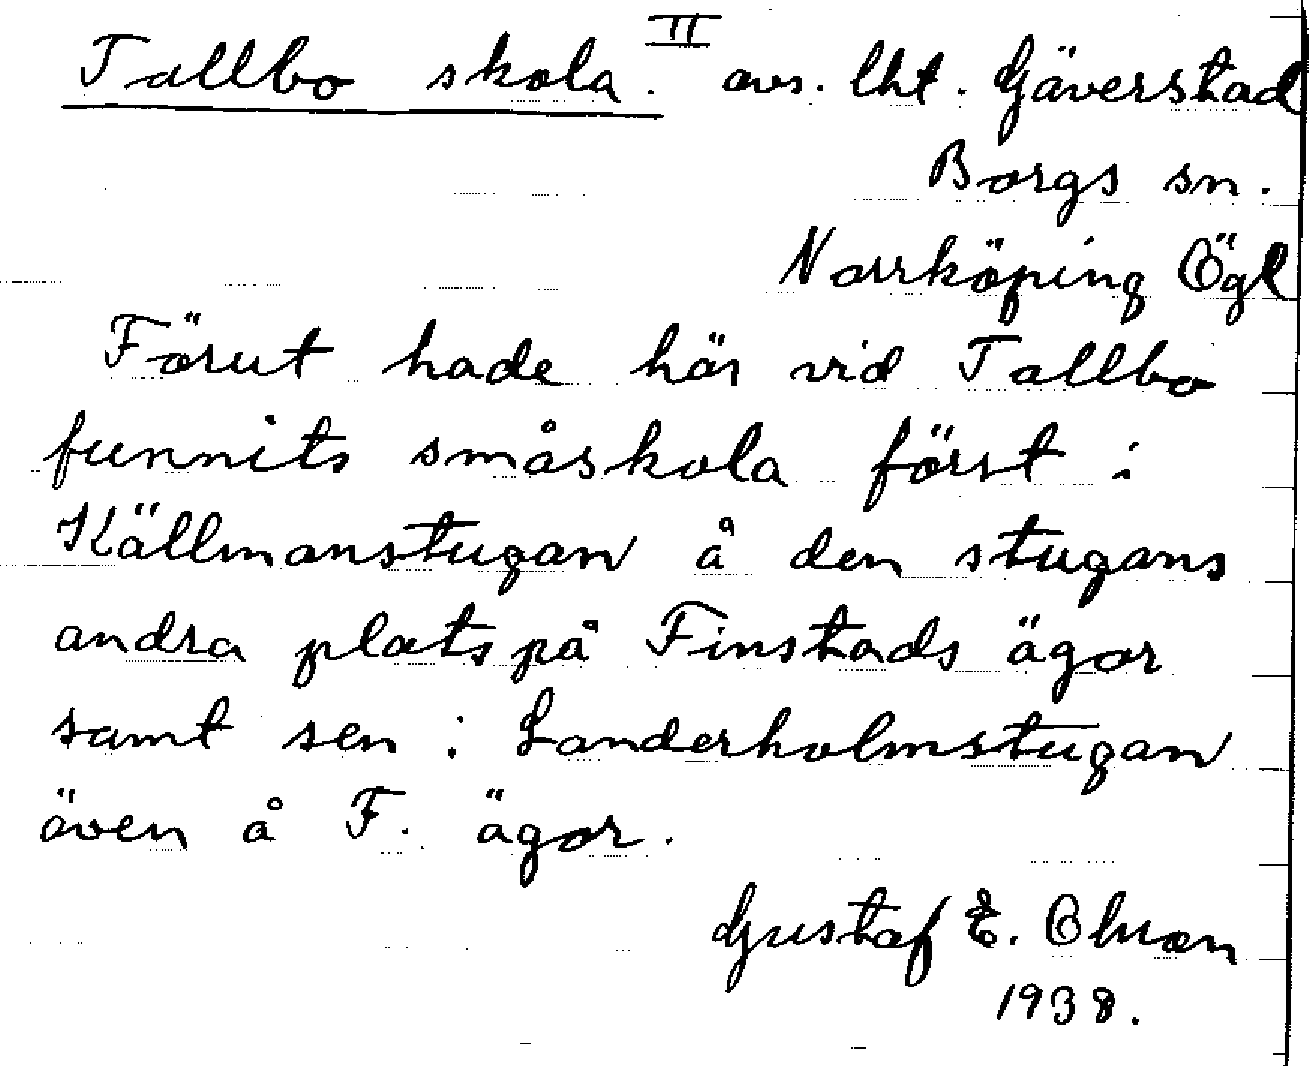 Tallbo skola. II avs. lht. Gäverstad
Borgs sn.
Norrköping Ögl
Förut hade här vid Tallbo
funnits småskola först i
Källmanstugan å den stugans
andra plats på Finstads ägor
samt sen i Landerholmstugan
även å F. ägor.
Gustaf E. Olsson
1938.